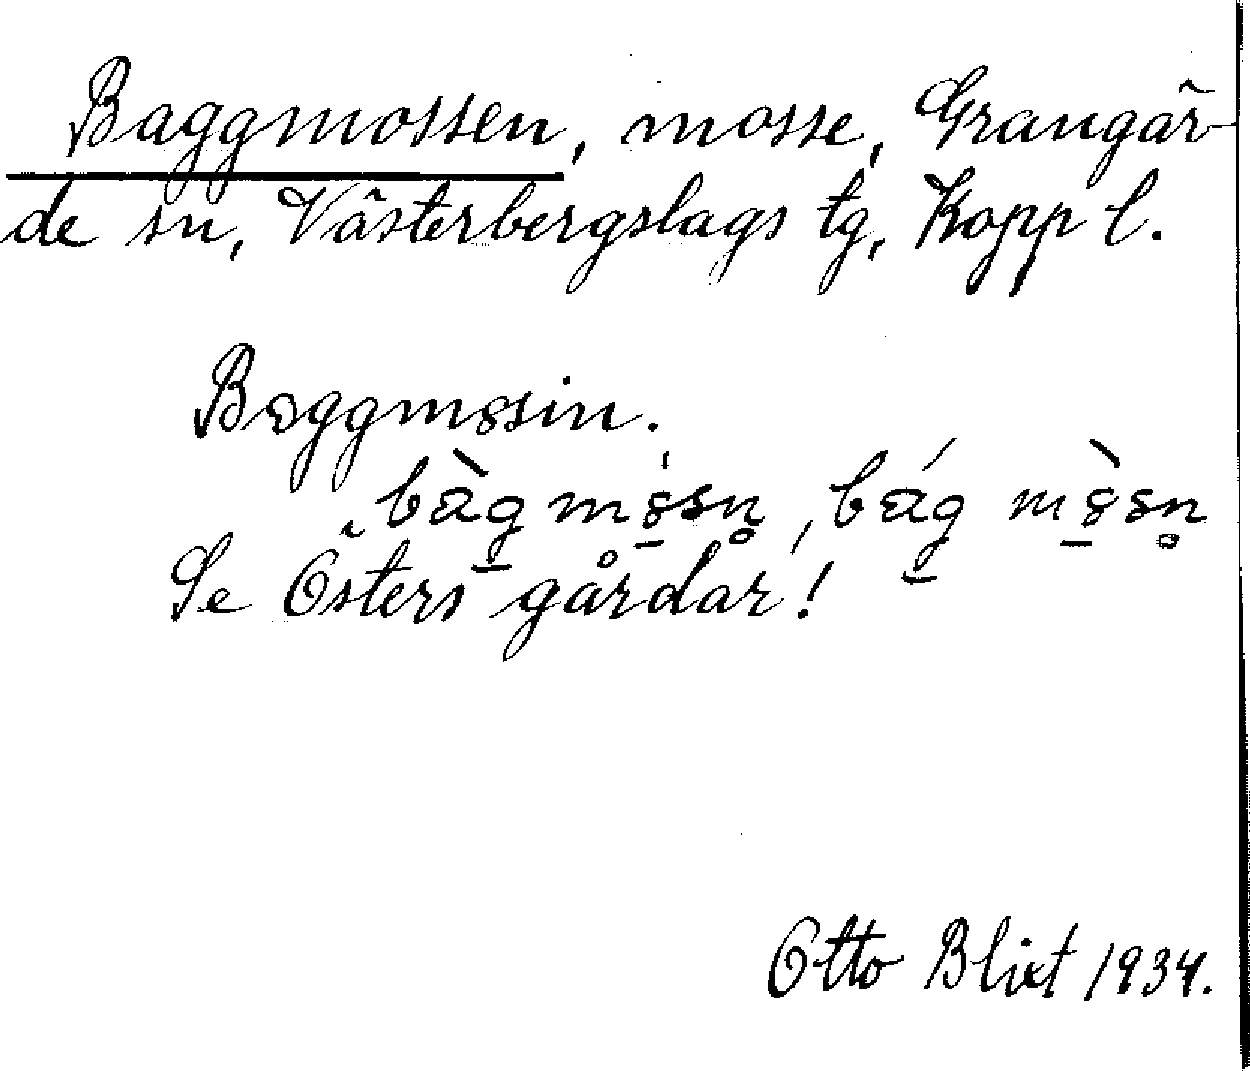 Baggmossen, mosse, Grangär-
de sn, Västerbergslags tg, Kopp l.
Baggmosin.
Se Östers gårdar!
Otto Blixt 1934.